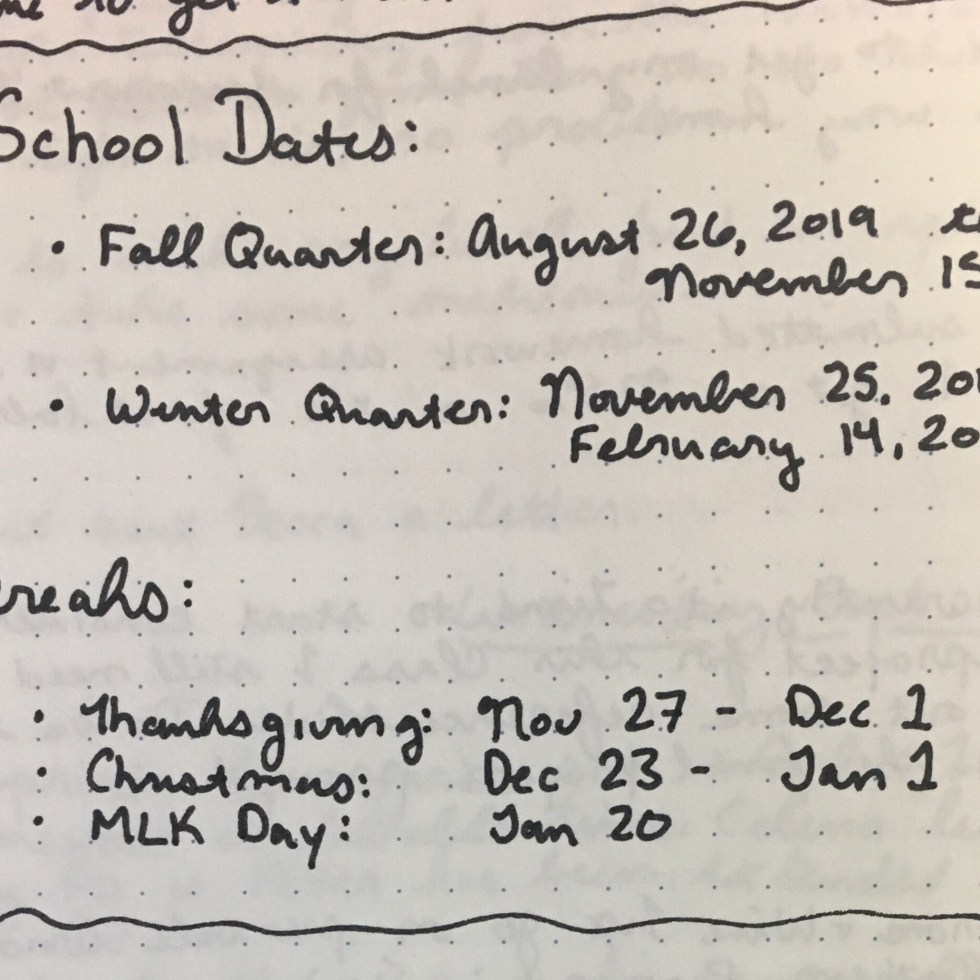 me to get
School Dates:
• Fall Quarter: August 26, 2019
November 15
• Winter Quarter: November 25, 201
February 14, 20
reaks:
• Thanksgiving: Nov 27 - Dec 1
• Christmas: Dec 23 - Jan 1
• MLK Day: Jan 20